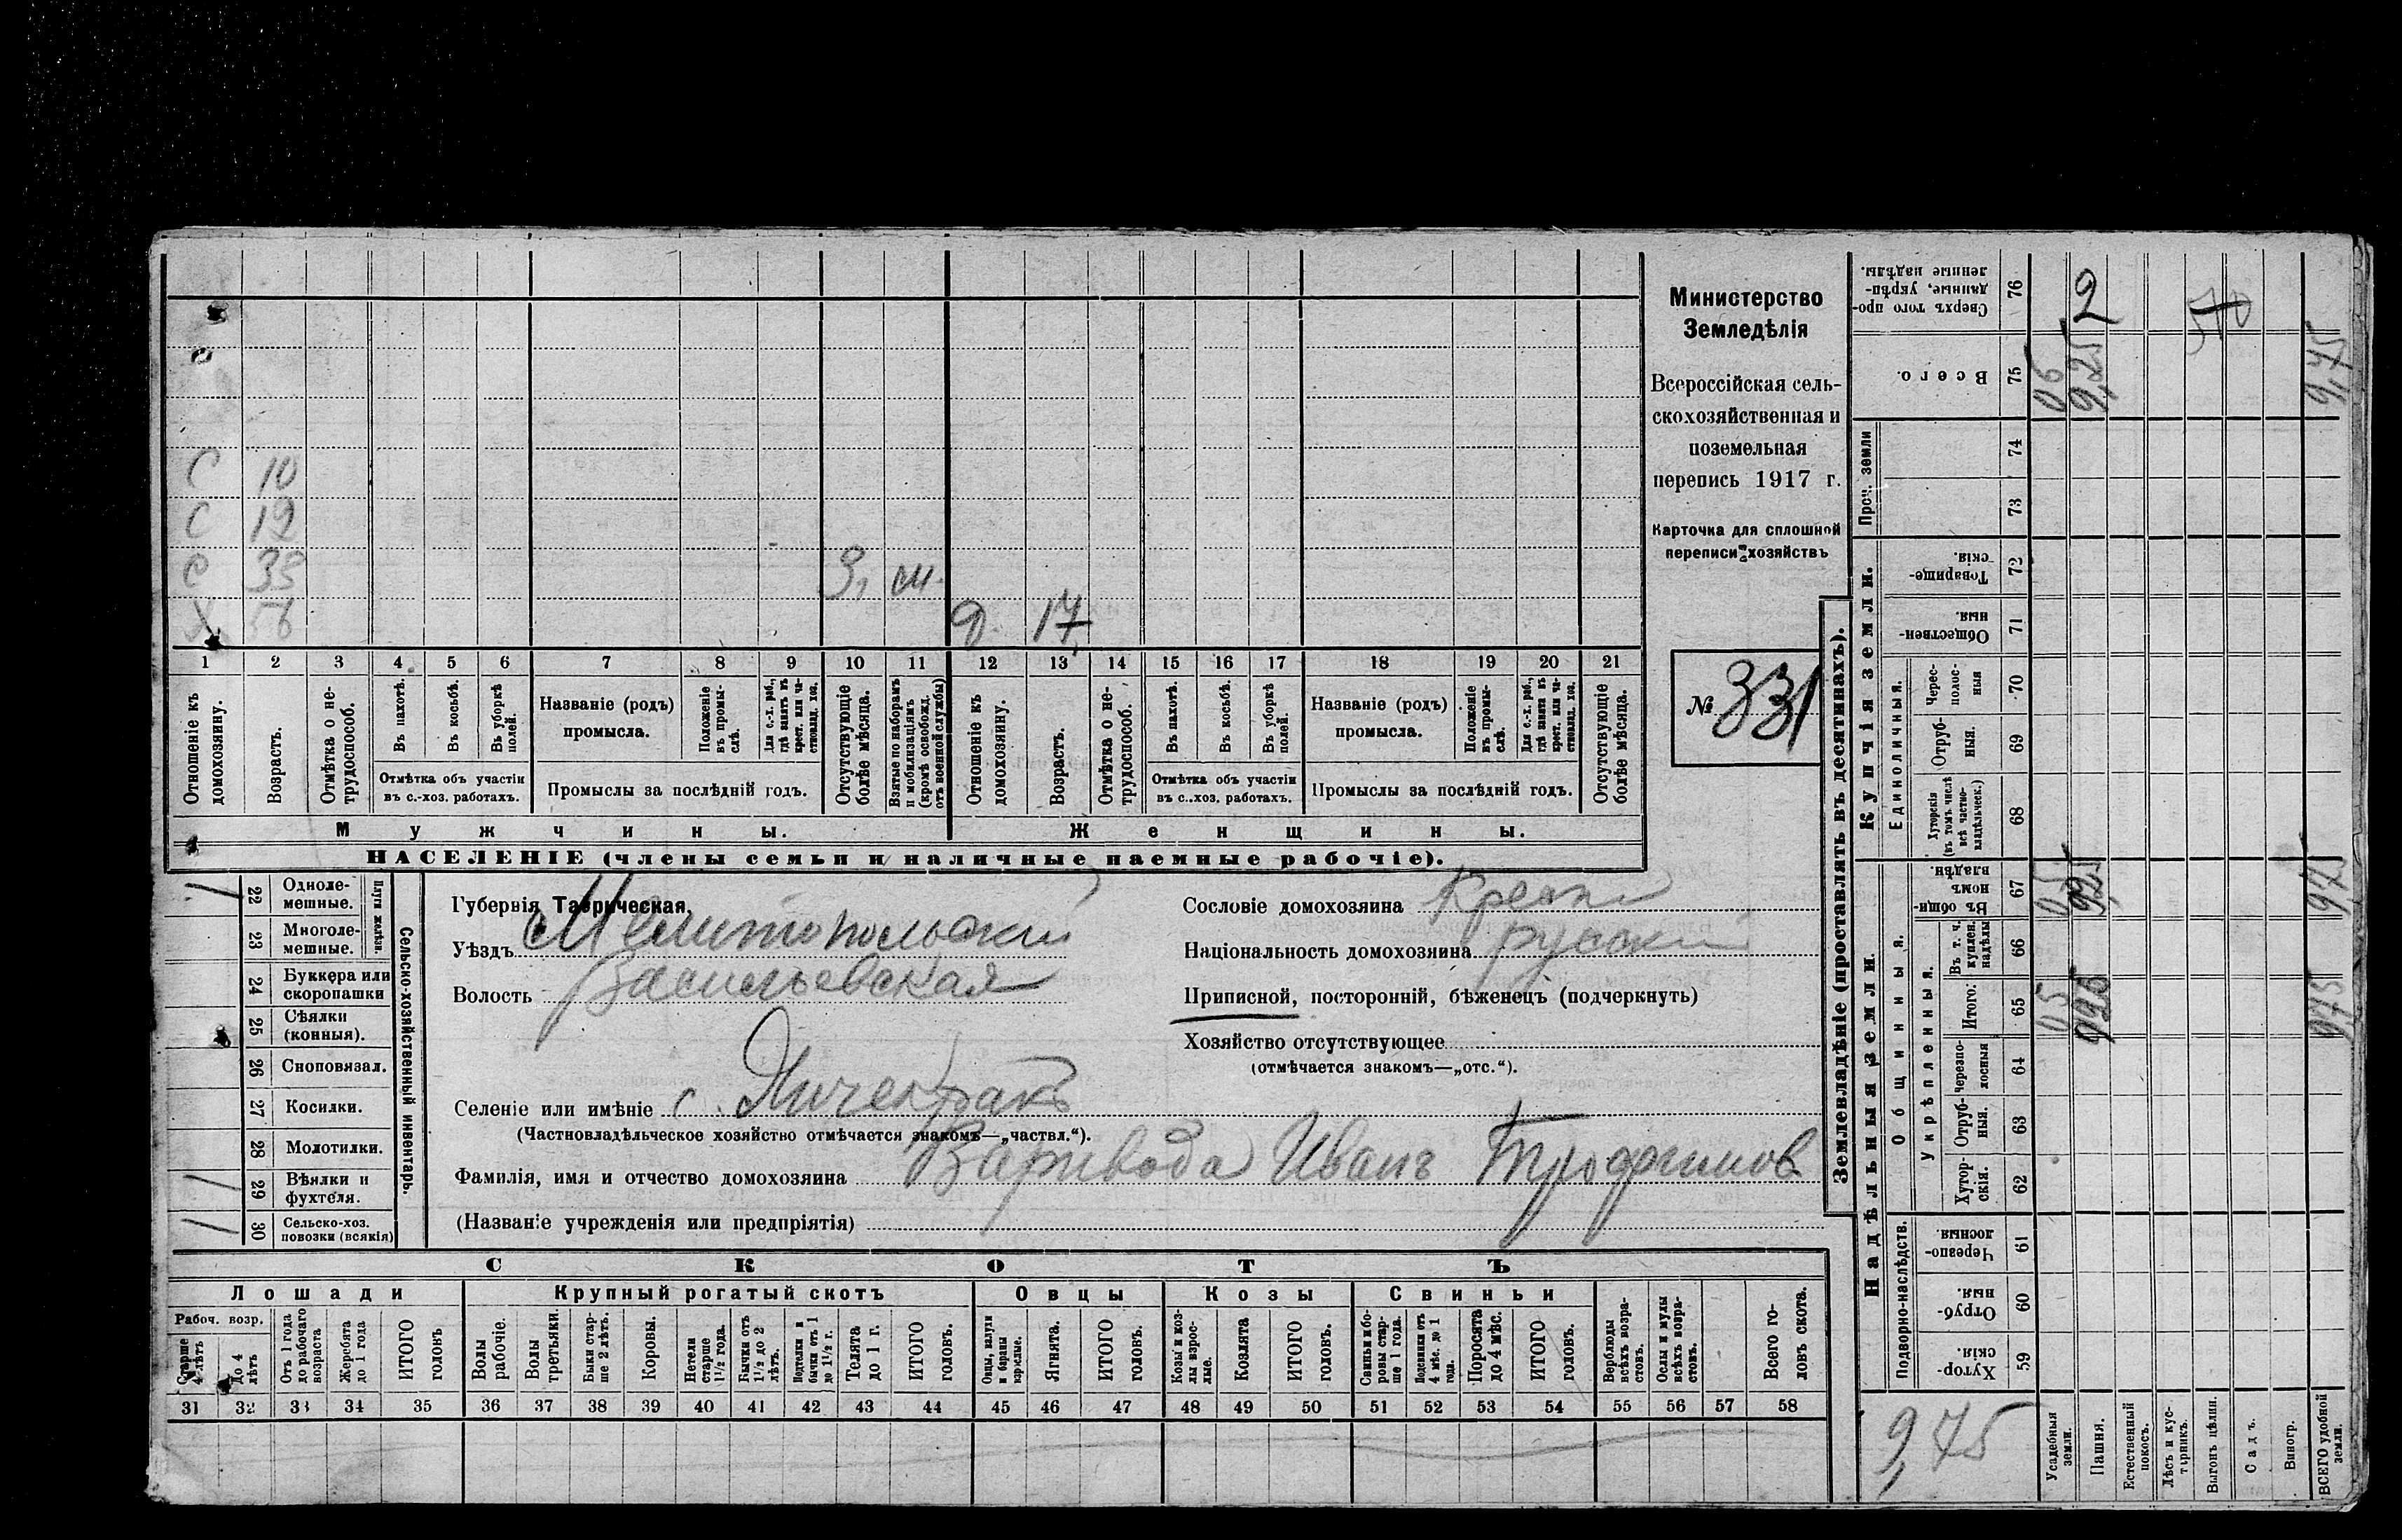 С 10
С 12
С 35
Х 56
З, м.
д. 17
1 2 3 4 5 6 7 8 9 10 11 12 13 14 15 16 17 18 19 20 21
Отношеніе къ домохозяину.
Возрастъ.
Отмѣтка о не-трудоспособ.
Въ пахотѣ.
Въ косьбѣ.
Въ уборкѣ полей.
Отмѣтка объ участіи
въ с.-хоз. работахъ.
Названіе (родъ)
промысла.
Положеніе въ промы-слѣ.
Для с.-х. раб., гдѣ занятъ въ крест. или ча-стновлад. хоз.
Промыслы за послѣдній годъ.
Отсутствующіе болѣе мѣсяца.
Взятые по наборамъ и мобилизаціямъ (кромѣ освобожд. отъ военной службы)
Отношеніе къ домохозяину.
Возрастъ.
Отмѣтка о не-трудоспособ.
Въ пахотѣ.
Въ косьбѣ.
Въ уборкѣ полей.
Отмѣтка объ участіи
въ с.-хоз. работахъ.
Названіе (родъ)
промысла.
Положеніе въ промы-слѣ.
Для с.-х. раб., гдѣ заняты въ крест. или ча-стновлад. хоз.
Промыслы за послѣдній годъ.
Отсутствующіе болѣе мѣсяца.
Мужчины.
Женщины.
НАСЕЛЕНІЕ (члены семьи и наличные наемные рабочіе).
Министерство
Земледѣлія
Всероссійская сель-
скохозяйственная и
поземельная
перепись 1917 г.
Карточка для сплошной
переписи хозяйствъ
№ 331
Сельско-хозяйственный инвентарь.
Плуги желѣзн.
22 Одноле-
мешные.
23 Многоле-
мешные.
24 Буккера или
скоропашки
25 Сѣялки
(конныя).
26 Сноповязал.
27 Косилки.
28 Молотилки.
29 Вѣялки и
фухтеля.
30 Сельско-хоз.
повозки (всякія)
Губернія Таврическая,
Уѣздъ Мелитопольскій
Волость Васильевская
Селеніе или имѣніе с. Янчекракъ
(Частновладѣльческое хозяйство отмѣчается знакомъ—„частвл.“).
Фамилія, имя и отчество домохозяинаВаривода Иванъ Трофимов
(Названіе учрежденія или предпріятія)
Сословіе домохозяина
Національность домохозяина русскій
Приписной, посторонній, бѣженецъ (подчеркнуть)
Хозяйство отсутствующее
(отмѣчается знакомъ—„отс.“).
СКОТЪ
Лошади
Крупный рогатый скотъ
Овцы
Козы
Свиньи
Рабоч. возр.
Старше 4 лѣтъ
До 4 лѣтъ
Отъ 1 года до рабочаго возраста
Жеребята до 1 года
ИТОГО головъ
Волы рабочіе.
Волы третьяки.
Быки стар-ше 2 лѣтъ.
Коровы.
Нетели старше 1½ года.
Бычки отъ 1½ до 2 лѣтъ.
Подтелки и бычки отъ 1 до 1½ г.
Телята до 1 г.
ИТОГО головъ.
Овцы, валухи и бараны взрослые.
Ягнята.
ИТОГО головъ.
Козы и коз-лы взрос-лые.
Козлята
ИТОГО головъ.
Свиньи и бо-ровы стар-ше 1 года.
Подсвинки отъ 4 мѣс. до 1 года.
Поросята до 4 мѣс.
ИТОГО головъ.
Верблюды всѣхъ возра-стовъ.
Ослы и мулы всѣхъ возра-стовъ.
Всего го-ловъ скота.
31 32 33 34 35 36 37 38 39 40 41 42 43 44 45 46 47 48 49 50 51 52 53 54 55 56 57 58
Землевладѣніе (проставлять въ десятинахъ).
Сверхъ того про-данные, укрѣп-ленные надѣлы. 76 2
Всего. 75 0,5 9,25 9,75
Проч. земли 74
73
Купчія земли.
Товарище-скія. 72
Обществен-ныя 71
Единоличныя.
Черес-полос-ныя 70
Отруб-ныя. 69
Хуторскія (въ томъ числѣ всѣ частно-владѣльческ.) 68
Надѣльныя земли.
Общинныя.
Въ общи-номъ владѣн. 67
Укрѣпленныя.
Въ т. ч. куплен. надѣлы 66
Итого: 65
Черезпо-лосныя 64
Отруб-ныя. 63
Хутор-скія. 62
Подворно-наслѣдств.
Черезпо-лосныя. 61
Отруб-ныя. 60
Хутор-скія. 59
9,75
Усадебныя земли.
Пашня.
Естественный покосъ.
Лѣсъ и кус-тарникъ.
Выгонъ цѣлин.
Садъ.
Виногр.
ВСЕГО удобной земли.